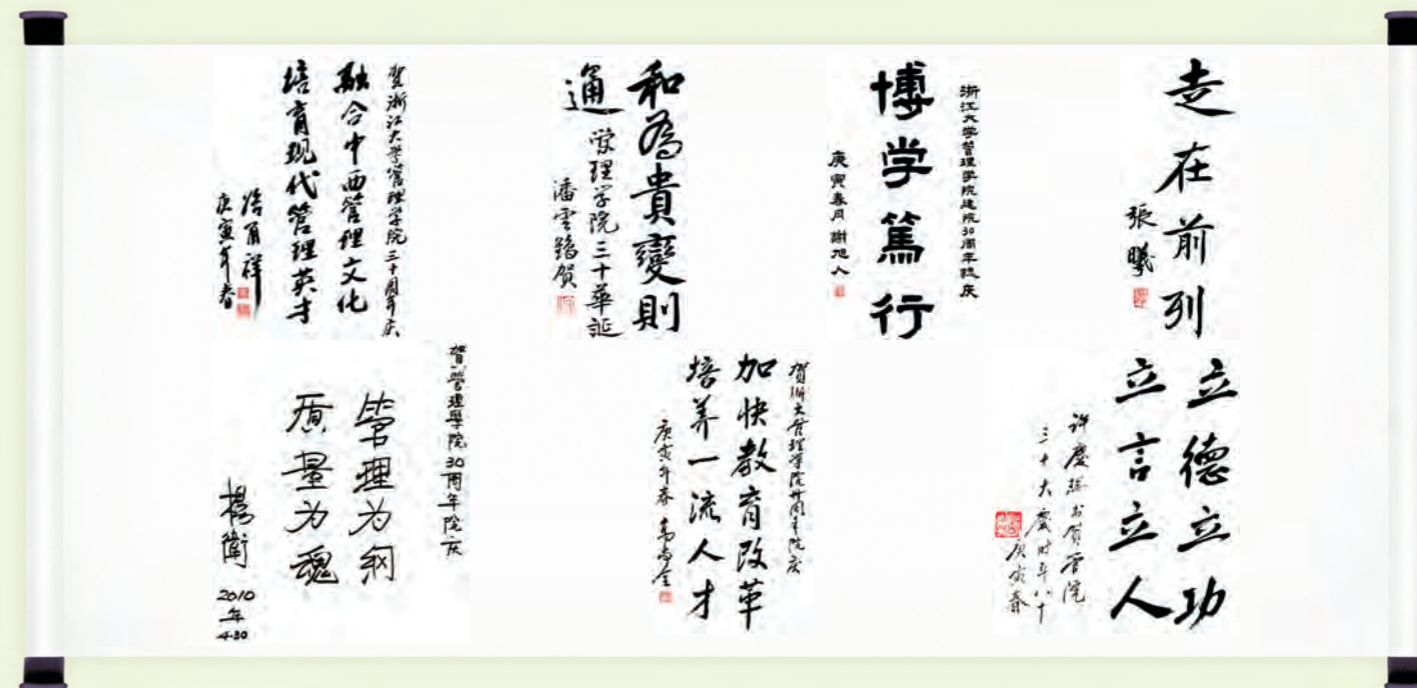 走在前列
張曦
浙江大学管理学院建院30周年院庆
博学篤行
庚寅春月 謝旭人
和為貴變則
通
管理学院三十華誕
潘雲鶴賀
賀浙江大学管理学院三十周年庆
融合中西管理文化
培育现代管理英才
庚寅年春
立德立功
立言立人
許慶瑞书贺管院
三十大慶时年八十
庚寅春
賀浙大管理学院卅周年院庆
加快教育改革
培养一流人才
庚寅年春 高尚全
贺管理學院30周年院庆
管理为纲
质量为魂
楊衛
2010
年
4.30